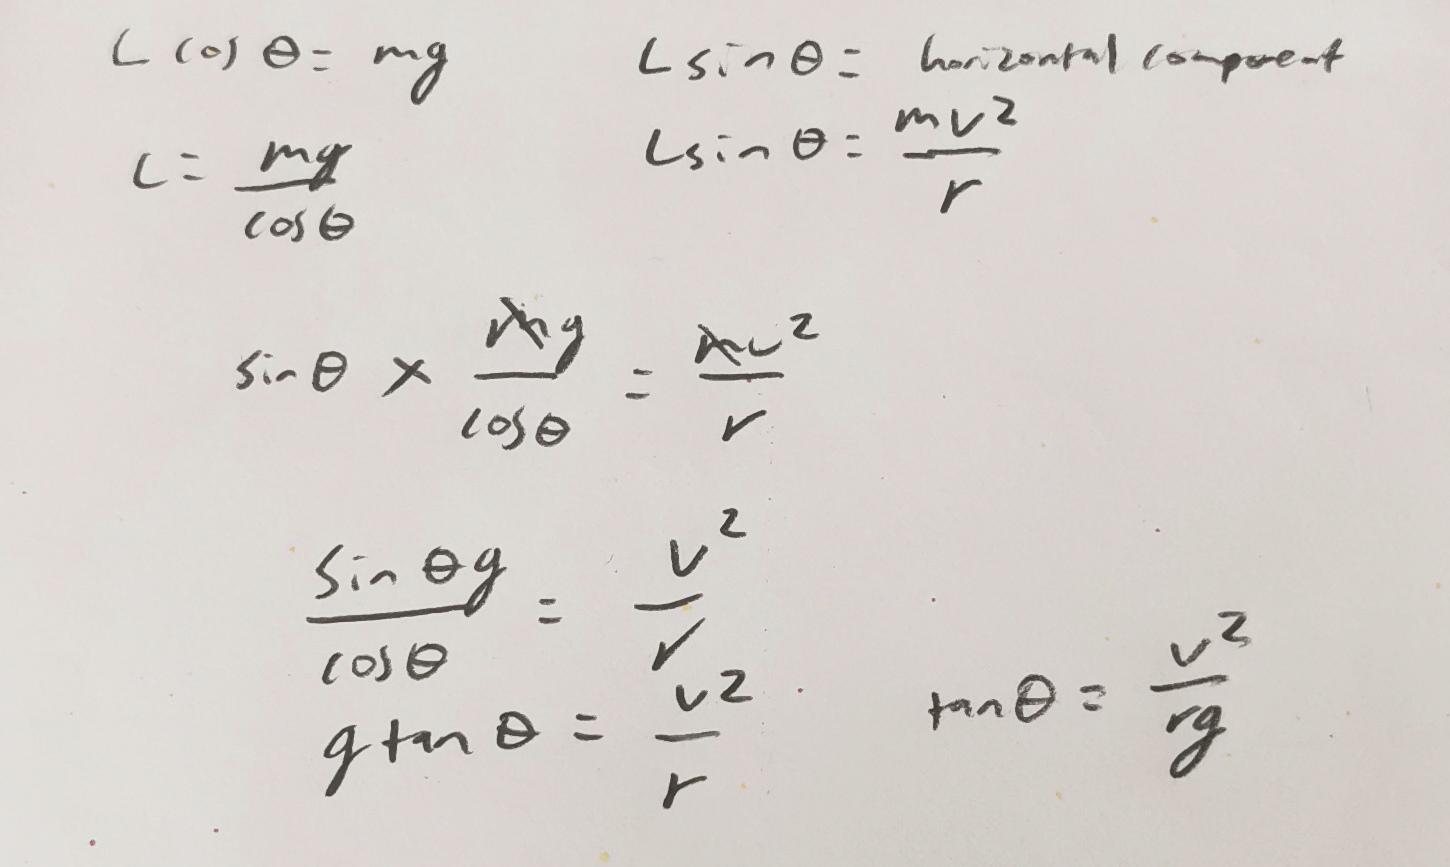 L cos θ = mg
L sin θ = horizontal component
L = mg/cos θ
L sin θ = mv²/r
sin θ × mg/cos θ = mv²/r
sin θg/cos θ = v²/r
g tan θ = v²/r
tan θ = v²/rg